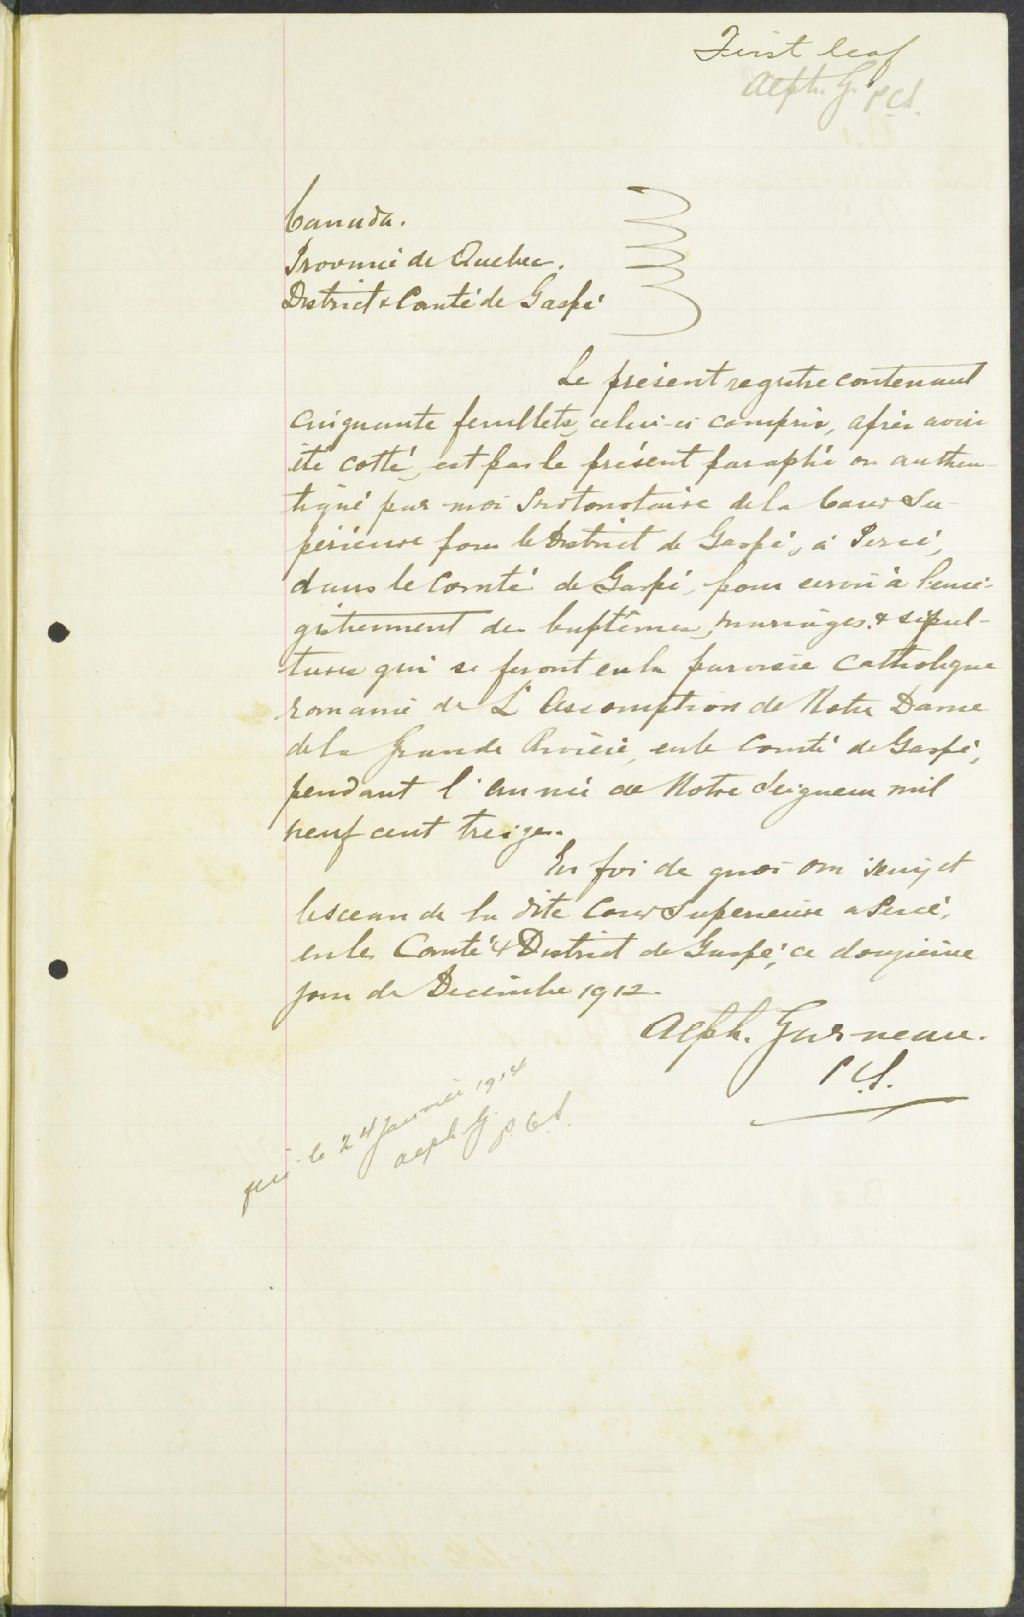 First leaf
Alph. G. P.C.S.
Canada.
Province de Quebec.
District & Comté de Gaspé
Le présent registre contenant
cinquante feuillets, celui-ci compris, après avoir
été cotté, est par le présent paraphé on authen-
tiqué par moi Protonotaire de la Cour Su-
périeure pour le District de Gaspé, à Percé,
dans le Comté de Gaspé, pour servir à l'enre-
gistrement des baptêmes, mariages & sépul-
tures qui se feront en la paroisse Catholique
romaine de L'Assomption de Notre Dame
de la Grande Rivière, en le Comté de Gaspé,
pendant l'année de Notre Seigneur mil
neuf cent treize.
En foi de quoi mon seing et
le sceau de la dite Cour Superieure a Percé,
en les Comté & District de Gaspé, ce douzième
jour de Decembre 1912.
Alph. Garneau.
P.C.S.
le 24 janvier 1914
Alph. G. P.C.S.